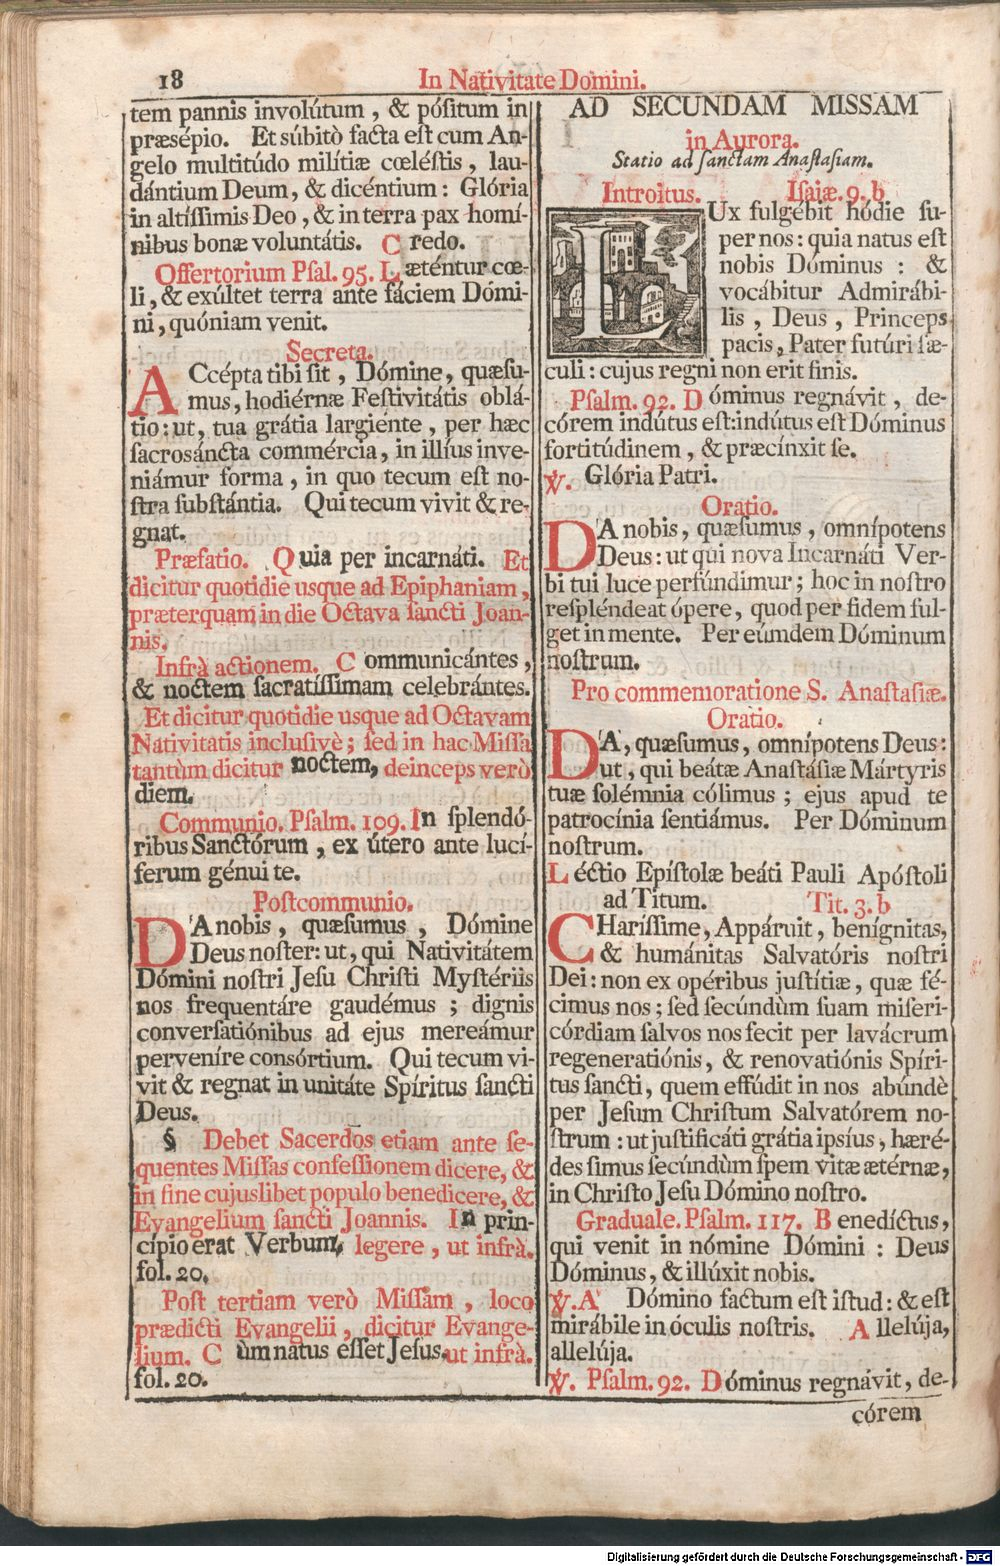 18
In Nativitate Domini.
tem pannis involútum, & pósitum in
præsépio. Et súbitò facta est cum An-
gelo multitúdo milítiæ cœléstis, lau-
dántium Deum, & dicéntium: Glória
in altíssimis Deo, & in terra pax homí-
nibus bonæ voluntátis. Credo.
Offertorium Psal. 95. Læténtur cœ-
li, & exúltet terra ante fáciem Dómi-
ni, quóniam venit.
Secreta.
ACcépta tibi sit, Dómine, quæsu-
mus, hodiérnæ Festivitátis oblá-
tio: ut, tua grátia largiénte, per hæc
sacrosáncta commércia, in illíus inve-
niámur forma, in quo tecum est no-
stra substántia. Qui tecum vivit & re-
gnat.
Præfatio. Quia per incarnáti. Et
dicitur quotidie usque ad Epiphaniam,
præterquam in die Octava sancti Joan-
nis.
Infrà actionem. Communicántes,
& noctem sacratíssimam celebrántes.
Et dicitur quotidie usque ad Octavam
Nativitatis inclusivè; sed in hac Missa
tantùm dicitur noctem, deinceps verò
diem.
Communio. Psalm. 109. In splendó-
ribus Sanctórum, ex útero ante lucí-
ferum génui te.
Postcommunio.
DA nobis, quæsumus, Dómine
Deus noster: ut, qui Nativitátem
Dómini nostri Jesu Christi Mystériis
nos frequentáre gaudémus; dignis
conversatiónibus ad ejus mereámur
perveníre consórtium. Qui tecum vi-
vit & regnat in unitáte Spíritus sancti
Deus.
§ Debet Sacerdos etiam ante se-
quentes Missas confessionem dicere, &
in fine cujuslibet populo benedicere, &
Evangelium sancti Joannis. In prin-
cípio erat Verbum, legere, ut infrà.
fol. 20.
Post tertiam verò Missam, loco
prædicti Evangelii, dicitur Evange-
lium. Cùm natus esset Jesus. ut infrà.
fol. 20.
AD SECUNDAM MISSAM
in Aurora.
Statio ad sanctam Anastasiam.
Introitus. Isaiæ. 9. b
LUx fulgébit hódie su-
per nos: quia natus est
nobis Dóminus: &
vocábitur Admirábi-
lis, Deus, Princeps
pacis, Pater futúri sæ-
culi: cujus regni non erit finis.
Psalm. 92. Dóminus regnávit, de-
córem indútus est: indútus est Dóminus
fortitúdinem, & præcínxit se.
℣. Glória Patri.
Oratio.
DA nobis, quæsumus, omnípotens
Deus: ut qui nova Incarnáti Ver-
bi tui luce perfúndimur; hoc in nostro
respléndeat ópere, quod per fidem ful-
get in mente. Per eúmdem Dóminum
nostrum.
Pro commemoratione S. Anastasiæ.
Oratio.
DA, quæsumus, omnípotens Deus:
ut, qui beátæ Anastásiæ Mártyris
tuæ solémnia cólimus; ejus apud te
patrocínia sentiámus. Per Dóminum
nostrum.
Léctio Epístolæ beáti Pauli Apóstoli
ad Titum. Tit. 3. b
CHaríssime, Appáruit, benígnitas,
& humánitas Salvatóris nostri
Dei: non ex opéribus justítiæ, quæ fé-
cimus nos; sed secúndùm suam miseri-
córdiam salvos nos fecit per lavácrum
regeneratiónis, & renovatiónis Spíri-
tus sancti, quem effúdit in nos abúndè
per Jesum Christum Salvatórem no-
strum: ut justificáti grátia ipsíus, hæré-
des simus secúndùm spem vitæ ætérnæ,
in Christo Jesu Dómino nostro.
Graduale. Psalm. 117. Benedíctus,
qui venit in nómine Dómini: Deus
Dóminus, & illúxit nobis.
℣. A Dómino factum est istud: & est
mirábile in óculis nostris. Allelúja,
allelúja.
℣. Psalm. 92. Dóminus regnávit, de-
córem
Digitalisierung gefördert durch die Deutsche Forschungsgemeinschaft - DFG